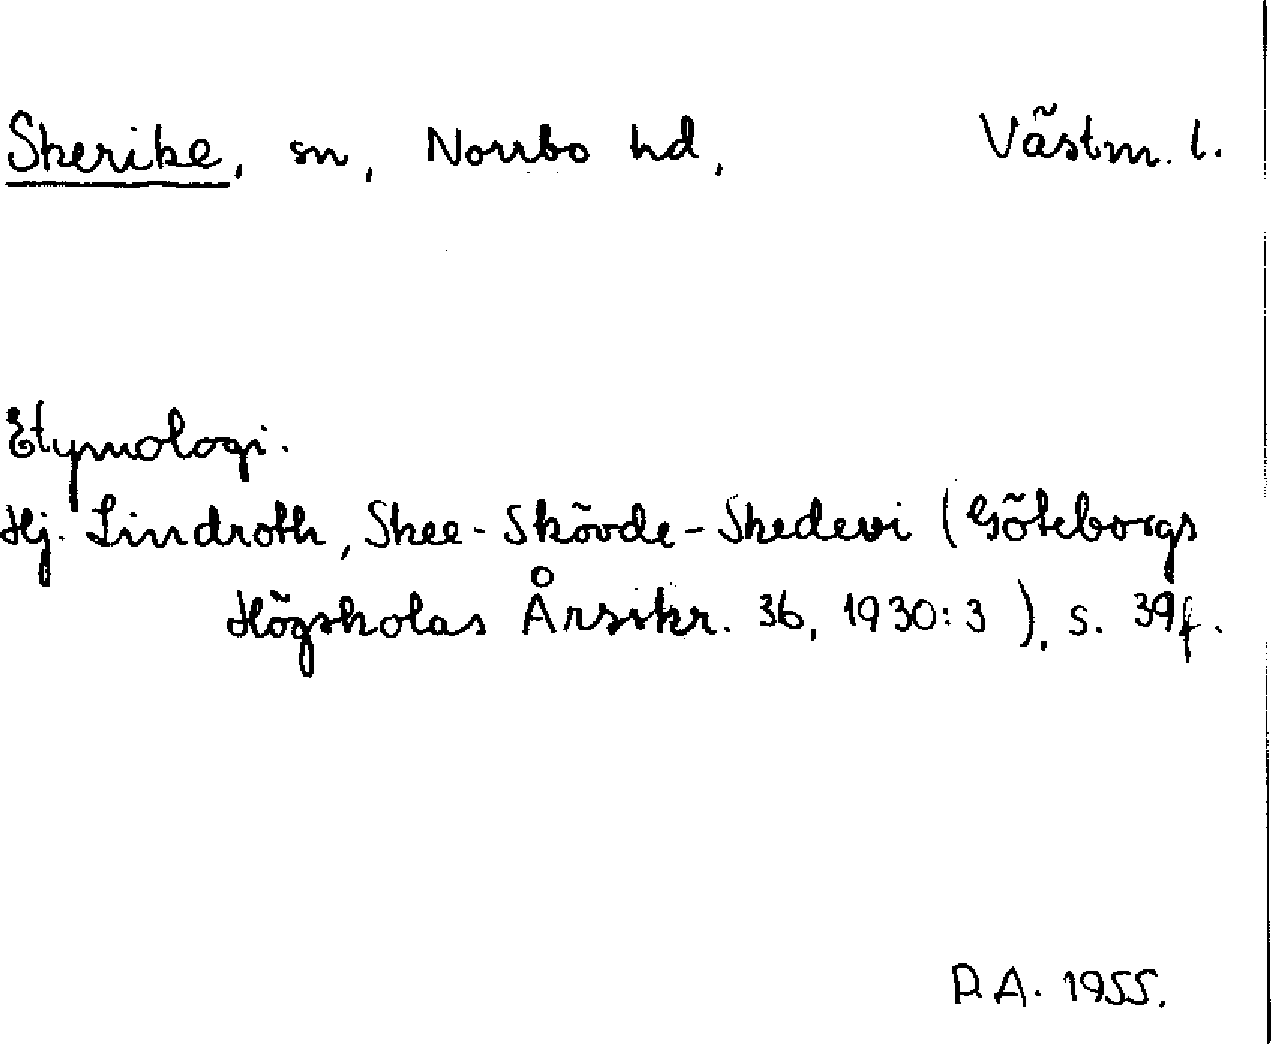 Skerike, sn, Norrbo hd, Västm. l.
Etymologi.
Hj. Lindroth, Skee - Skövde - Skedevi (Göteborgs
Högskolas Årsskr. 36, 1930:3), s. 39f.
D.A. 1955.